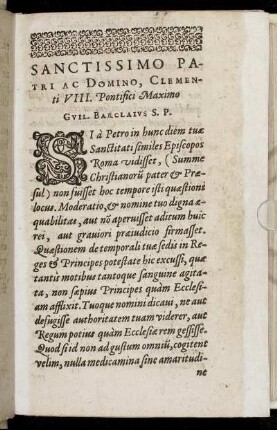 SANCTISSIMO PA-
TRI AC DOMINO, CLEMEN-
TI VIII. Pontifici Maximo
GVIL. BARCLAIVS S. P.
SI à Petro in hunc diem tuæ
Sanctitati similes Episcopos
Roma vidisset, (Summe
Christianorũ pater & Præ-
sul) non fuisset hoc tempore isti quæstioni
locus. Moderatio, & nomine tuo digna æ-
quabilitas, aut nõ aperuisset aditum huic
rei, aut grauiori præiudicio firmasset.
Quæstionem de temporali tuæ sedis in Re-
ges & Principes potestate hic excussi, quæ
tantis motibus tantoque sanguine agita-
ta, non sæpius Principes quàm Ecclesi-
am afflixit. Tuoque nomini dicaui, ne aut
defugisse authoritatem tuam viderer, aut
Regum potius quàm Ecclesiæ rem gessisse.
Quod si id non ad gustum omniũ, cogitent
velim, nulla medicamina sine amaritudi-
ne